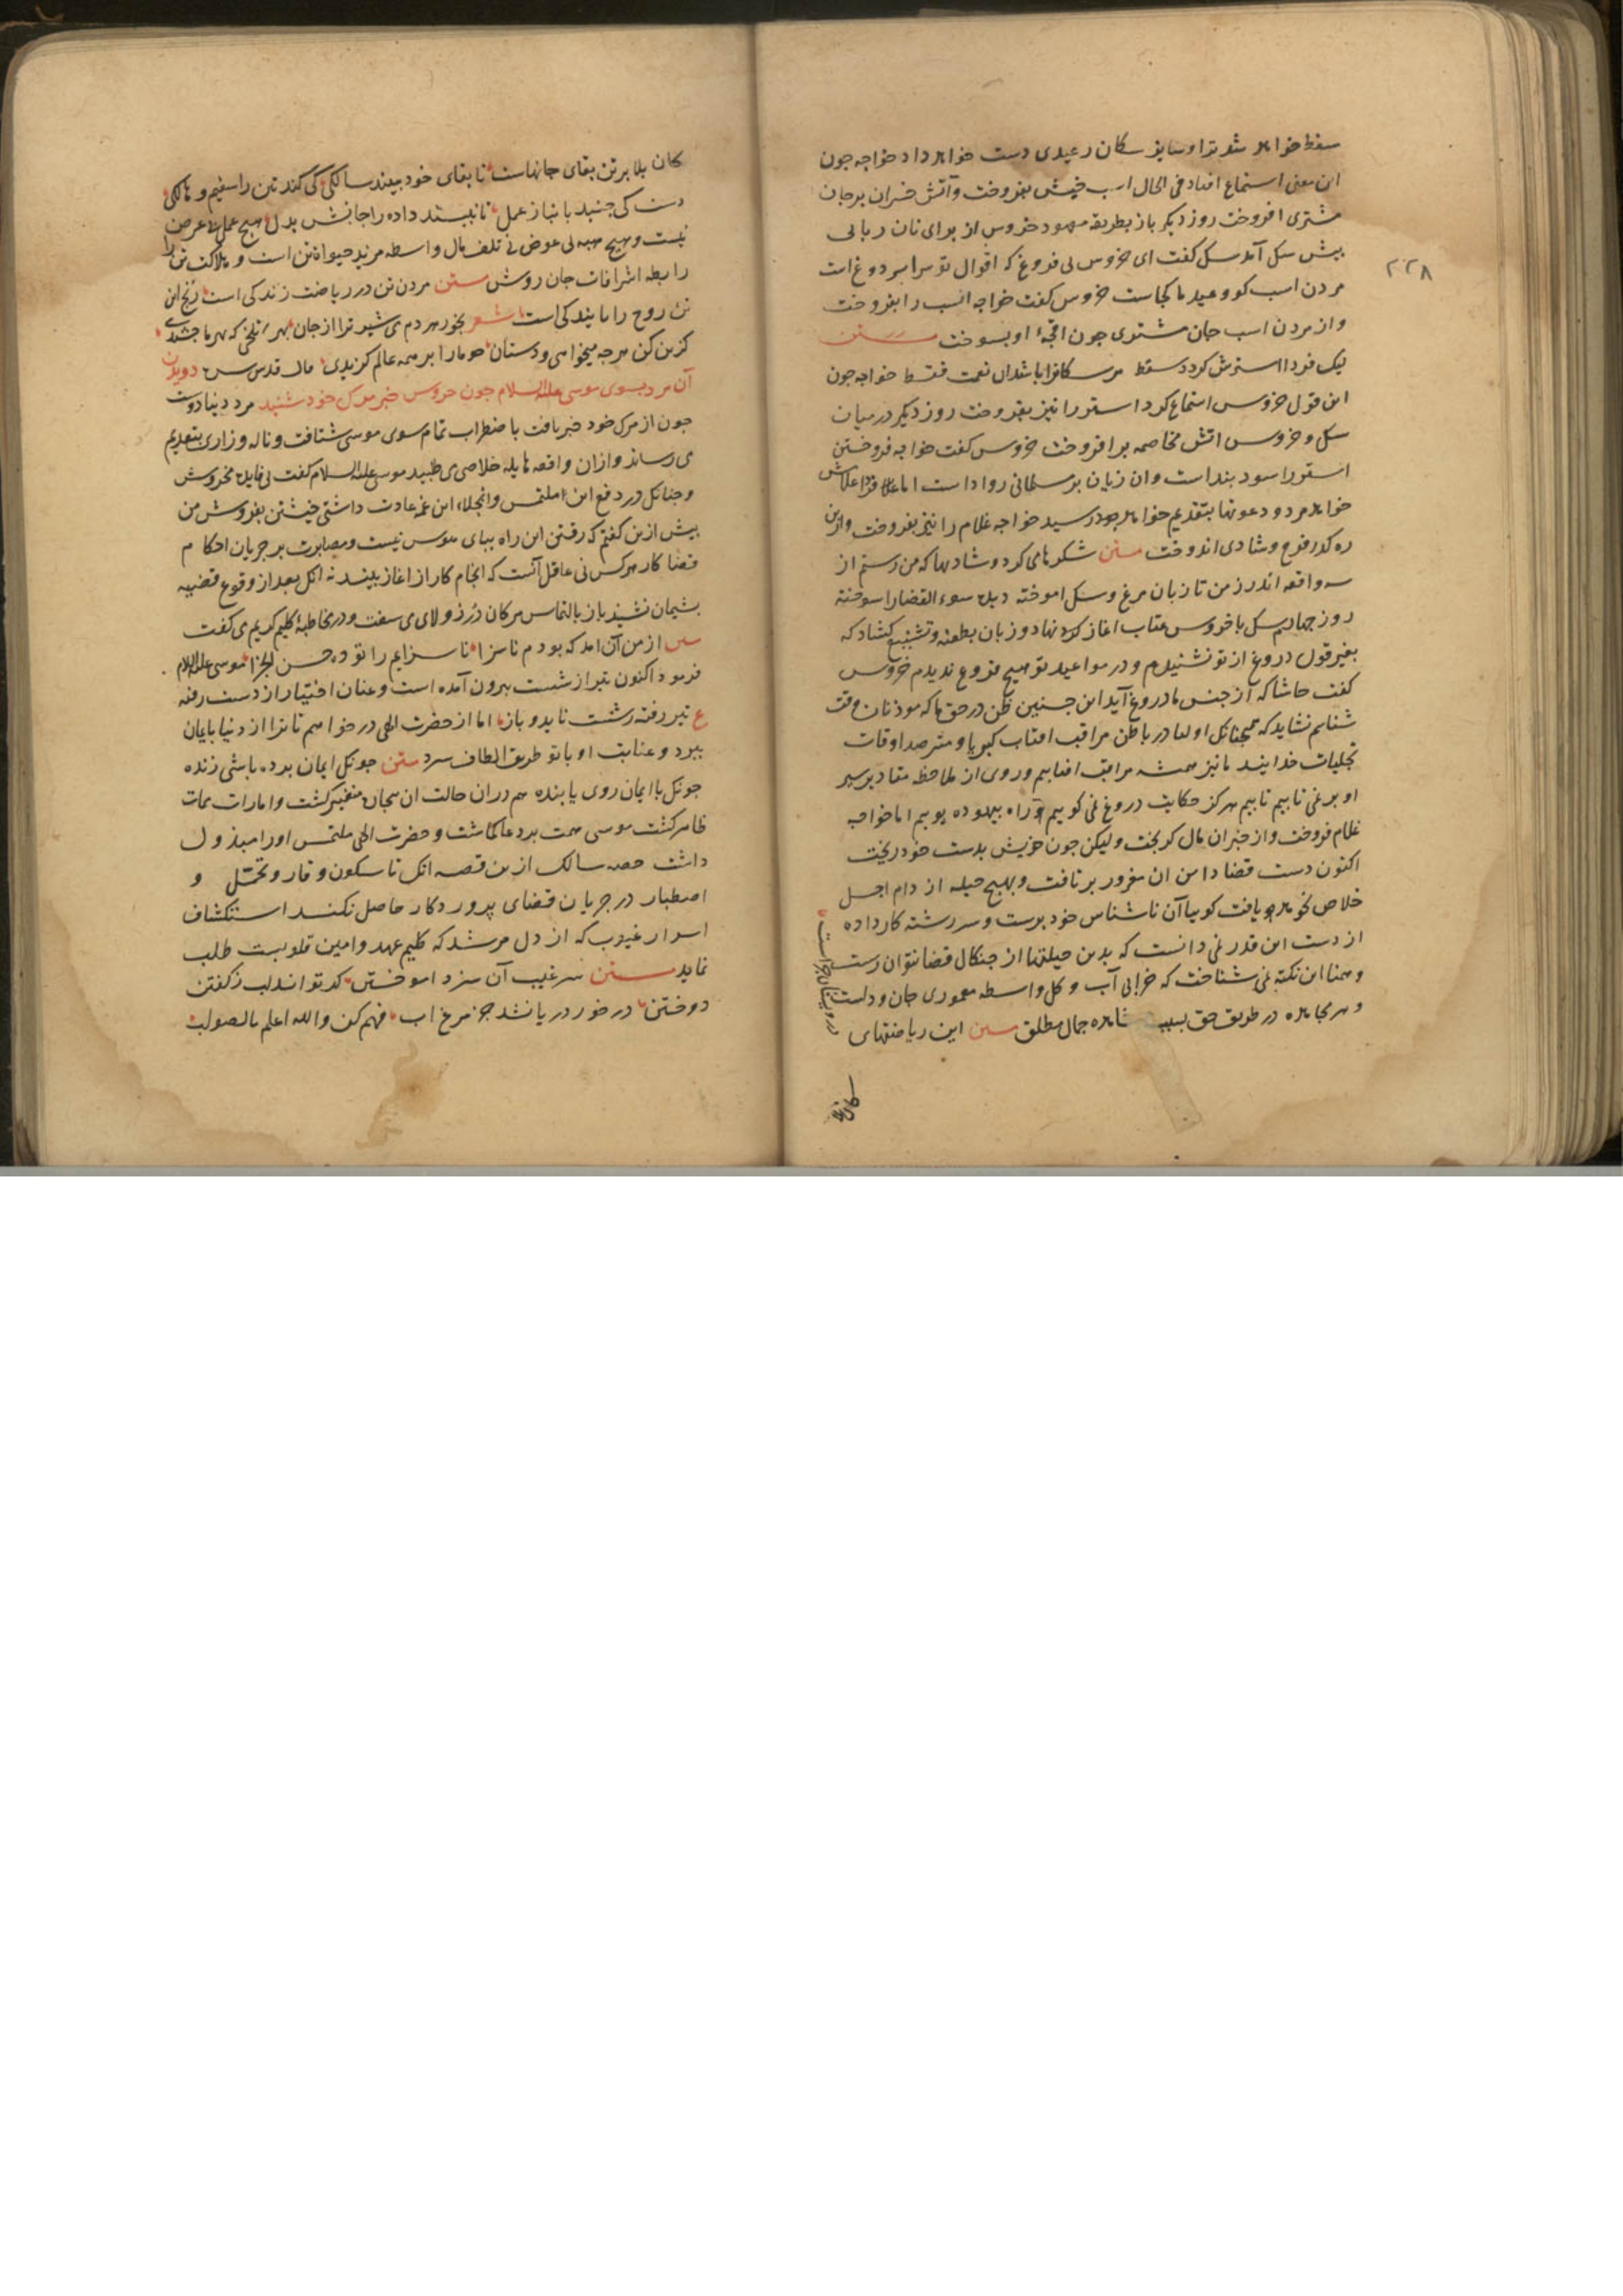 سقط خواهد شد ترا و سایر سکان را عیدی دست خواهد داد خواجه جون
این معنی استماع افتاد فی الحال اسب خویش بفروخت و آتش خسران بر جان
مشتری افروخت روز دیکر باز بطریقه معهود خروس از برای نان ربایی
بیش سک آمد سک کفت ای خروس بی فروغ که اقوال تو سراسر دروغ است
مردن اسب کو و عید ما کجاست خروس کفت خواجه اسب را بفروخت
و از مردن اسب جان مشتری جون او بسوخت متن
لیک فردا استرش کردد سقط مر سکانرا باشد ان نعمت فقط خواجه جون
این قول خروس استماع کرد استر را نیز بفروخت روز دیکر در میان
سک و خروس اتش مخاصمه بر افروخت خروس کفت خواجه فروختن
استر را سود بنداست و ان زیان بر مسلمانی رواداست اما فردا غلامش
خواهد مرد و دعوتها بتقدیم خواهد رسید خواجه غلام را نیز بفروخت و ازین
ره کذر فرح و شادی اندوخت متن شکرها می کرد و شادیها که من رستم از
سه واقعه اندر زمن تا زبان مرغ و سک اموخته دیده سوء القضا را سوخته
روز جهارم سک با خروس عتاب اغاز کرد نهاد و زبان بطعنه و تشنیع کشاد که
بغیر قول دروغ از تو نشنیدم و در مواعید تو هیچ فروغ ندیدم خروس
کفت حاشا که از جنس ما دروغ آید این جنین ظن در حق ما که موذنان وقت
شناسیم نشاید که همجنانکه اولیا در باطن مراقب افتاب کبریا و مترصد اوقات
تجلیات خدایند ما نیز همیشه مراقب افتابیم و روی از ملاحظه مقادیر سیر
او بر نمی تابیم تا بیم هرکز حکایت دروغ نمی کوییم و راه بیهوده نپوییم اما خواجه
غلام فروخت و از خسران مال کریخت ولیکن جون خویش بدست خود ریخت
اکنون دست قضا دامن ان مغرور بر تافت و بهیج حیله از دام اجل
خلاص نخواهد یافت کوییا آن ناشناس خود برست و سررشته کار داده
از دست این قدر نمی دانست که بدین حیلتها از جنکال قضا نتوان رست
و همنا این نکته نمی شناخت که خرابی آب و کل واسطه معموری جان و دلست
و هر مجاهده در طریق حق بسبب مشاهده جمال مطلق متن این ریاضتهای
درویشان جراست
کان بلا
۲۲۸
کان بلا بر تن بقای جانهاست تا بقای خود بیند سالکی کی کند تن را سقیم و هالکی
دست کی جنبد بایثار عمل تا نبیند داده را جانش بدل هیج عمل بی عوض
نیست و هیج هبه بی عوض نی تلف مال واسطه مزید حیوة تن است و هلاکت تن را
رابطه اشراقات جان روشن متن مردن تن در ریاضت زندکی است رنج این
تن روح را پایندکی است شعر بخور هر دم می شیر ترا از جان
کزین کن هرجه میخواهی و دستان جو ما را بر همه عالم کزیدی قال قدس سره دویدن
آن مرد بسوی موسی علیه السلام جون خروس خبر مرک خود شنید مرد دنیا دوست
جون از مرک خود خبر یافت با ضطراب تمام سوی موسی شتافت و ناله و زاری بتقدیم
می رساند و ازان واقعه هایله خلاصی می طلبید موسی علیه السلام کفت بی فایده مخروش
و جنانکه در دفع این ملتمس و انجلاء این غمه عادت داشتی خویشتن بفروش من
بیش ازین کفتم که رفتن این راه بپای هوس نیست و مصابرت بر جریان احکام
قضا کار هر کس نی عاقل آنست که انجام کار از اغاز بیند نه انک بعد از وقوع قضیه
بشیمان نشیند باز بالتماس مرد کان در و لالی می سفت و در مخاطبه کلیم کریم می کفت
متن از من آن امد که بودم ناسزا ناسزایم را تو ده حسن الجزا موسی علیه السلام
فرمود اکنون تیر از شست بیرون آمده است و عنان اختیار از دست رفته
ع تیر رفته ز شست ناید و باز اما از حضرت الهی در خواهم تا ترا از دنیا با ایمان
ببرد و عنایت او با تو طریق الطاف سپرد متن جونک ایمان برده باشی زنده
جونک با ایمان روی پاینده هم در ان حالت ان بیجان متغیر کشت و امارات ممات
ظاهر کشت موسی همت بر دعا کماشت و حضرت الهی ملتمس او را مبذول
داشت حصه سالک ازین قصه انک تا سکون و قار و تحمل و
اصطبار در جریان قضای پروردکار حاصل نکند استکشاف
اسرار غیوب که از دل مرشد که کلیم عهد و امین قلوبست طلب
نماید متن سر غیب آن سزد اموختن که تواند لب ز کفتن
دوختن در خور دریا نشد جز مرغ اب فهم کن والله اعلم بالصواب